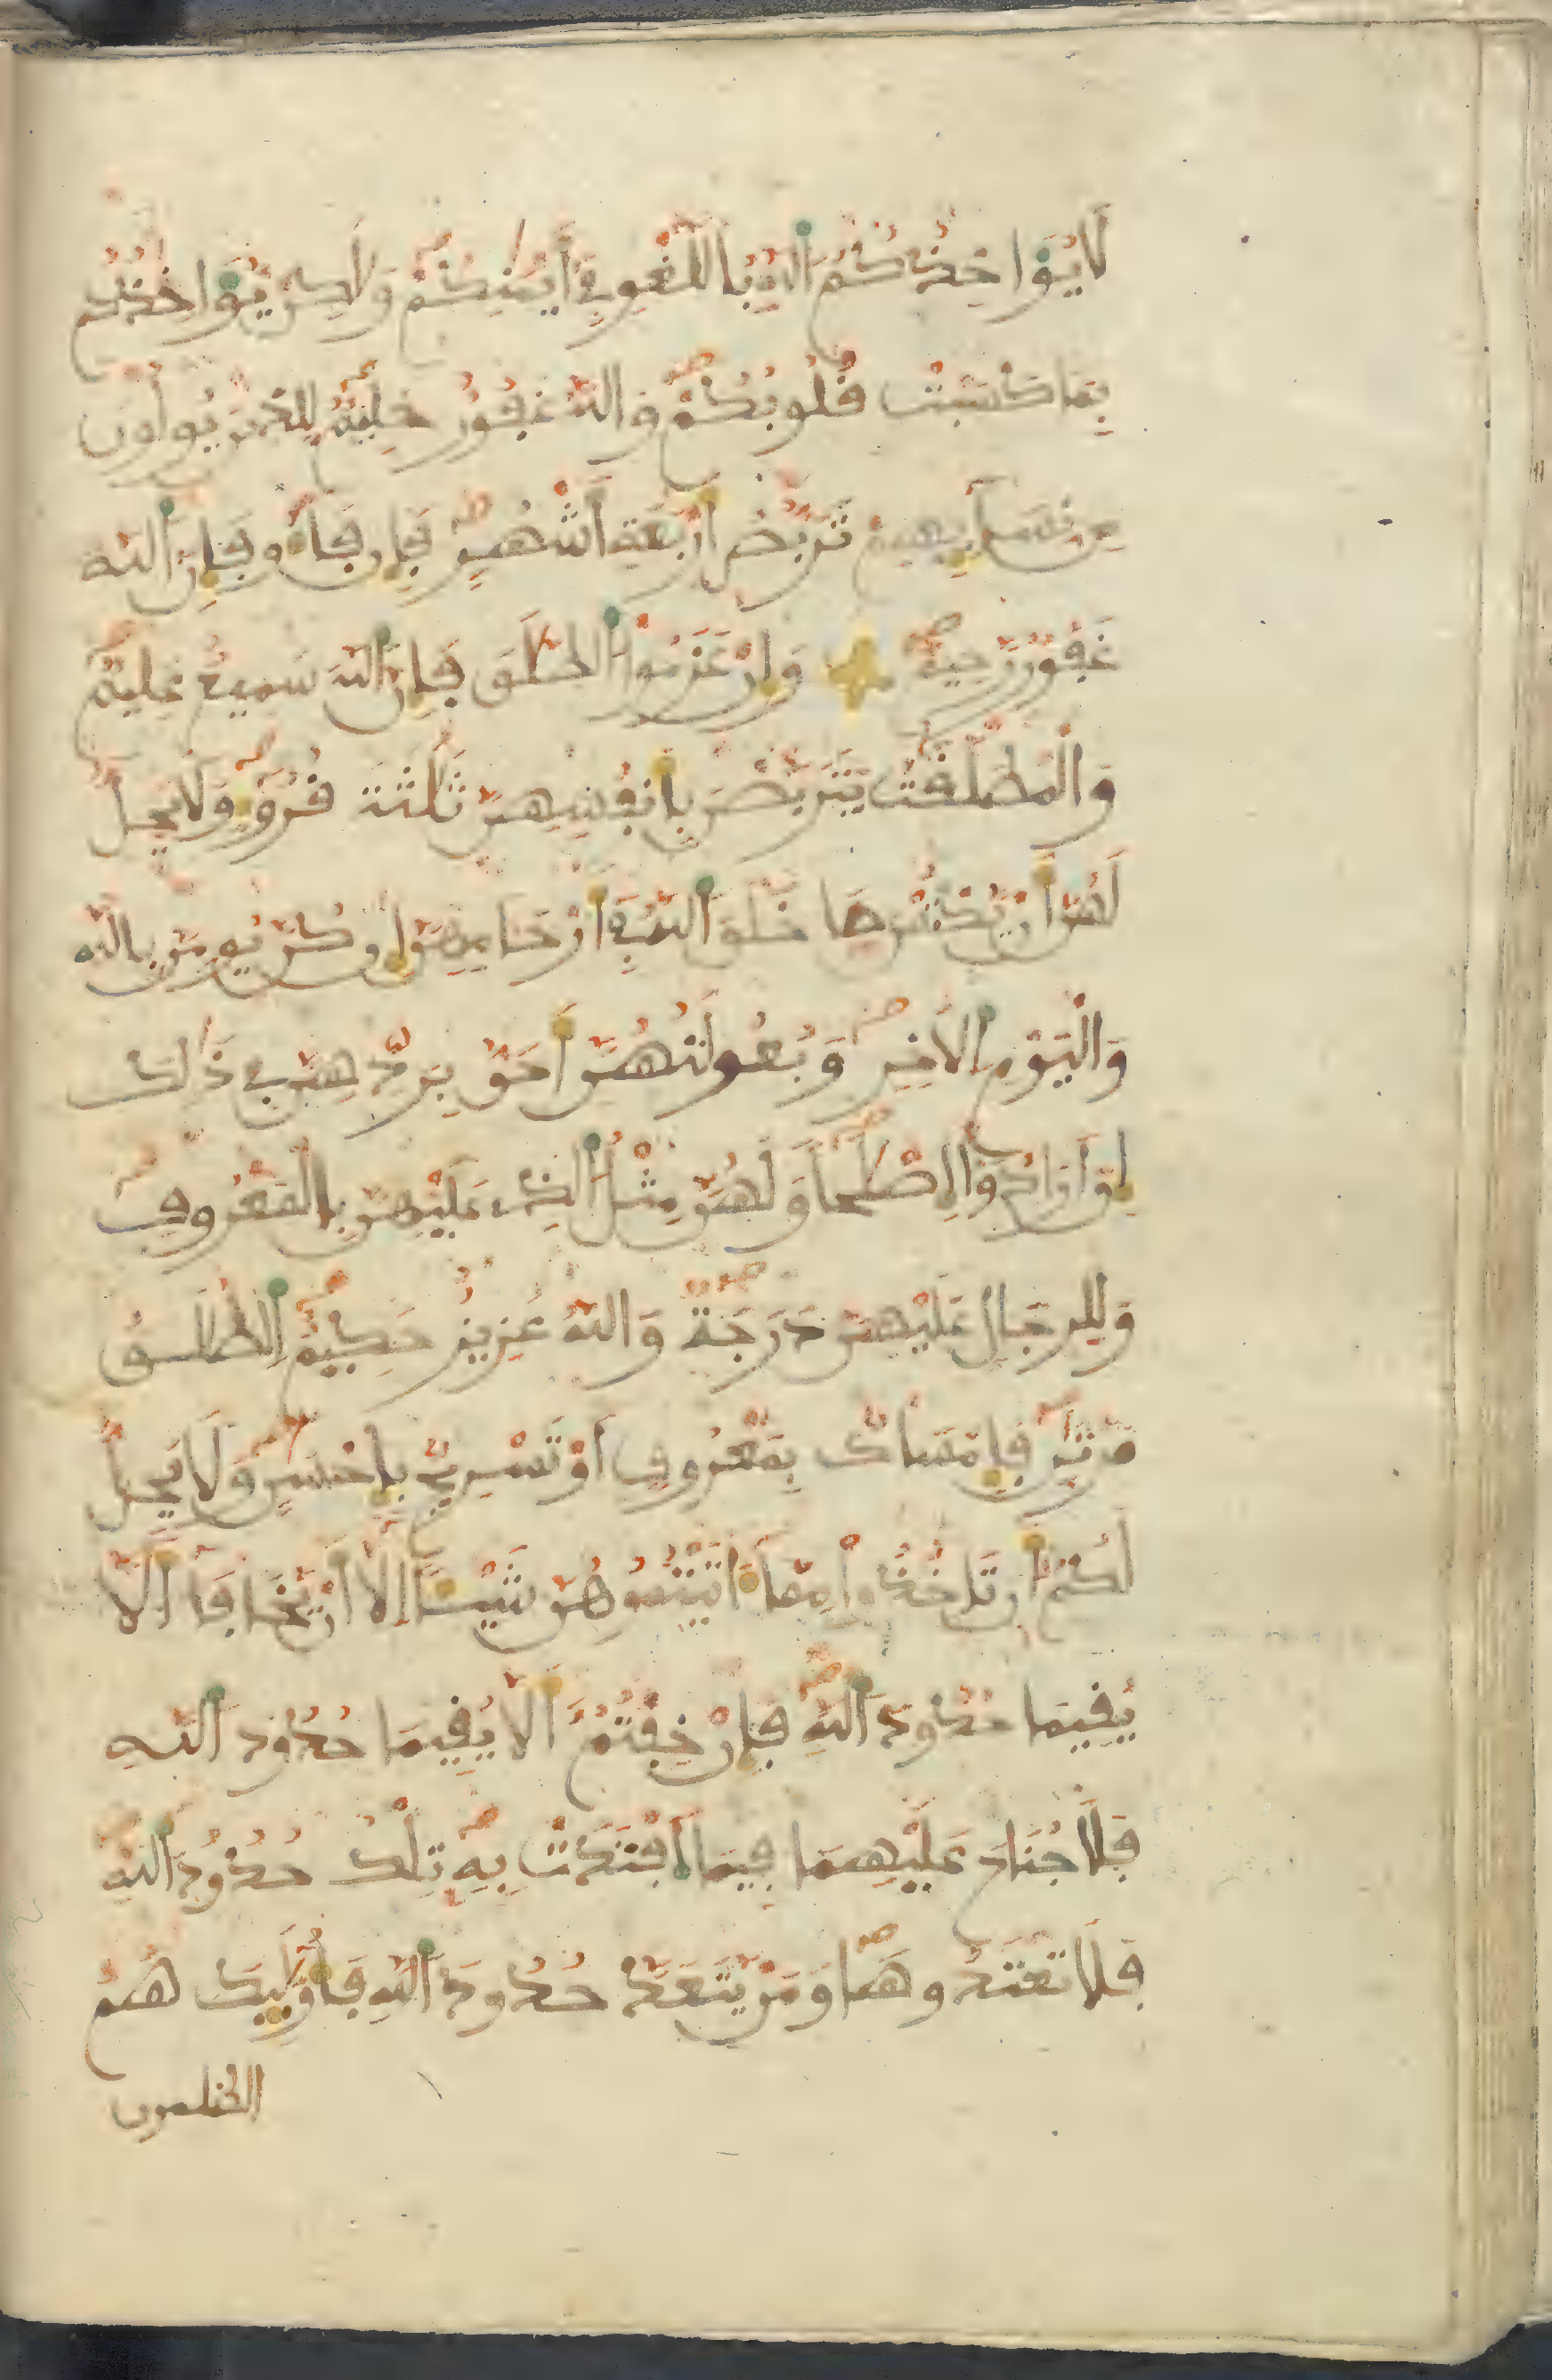 لَا يُوَاخِذُكُمُ اَللَّهُ بِاللَّغْوِ فِي أَيْمَٰنِكُمْ وَلَٰكِنْ يُّوَاخِذُكُم
بِمَا كَسَبَتْ قُلُوبُكُمْ وَاللَّهُ غَفُورٌ حَلِيمٌ لِّلَّذِينَ يُولُونَ
مِن نِّسَآئِهِمْ تَرَبُّصُ أَرْبَعَةِ أَشْهُرٍ فَإِن فَآءُو فَإِنَّ اَللَّهَ
غَفُورٌ رَّحِيمٌ وَإِنْ عَزَمُوا اُلطَّلَٰقَ فَإِنَّ اَللَّهَ سَمِيعٌ عَلِيمٌ
وَالْمُطَلَّقَٰتُ يَتَرَبَّصْنَ بِأَنفُسِهِنَّ ثَلَٰثَةَ قُرُوءٍ وَلَا يَحِلُّ
لَهُنَّ أَنْ يَّكْتُمْنَ مَا خَلَقَ اَللَّهُ فِي أَرْحَامِهِنَّ إِن كُنَّ يُومِنَّ بِاللَّهِ
وَالْيَوْمِ اِلْأَخِرِ وَبُعُولَتُهُنَّ أَحَقُّ بِرَدِّهِنَّ فِي ذَٰلِكَ
إِنْ أَرَادُوا إِصْلَٰحًا وَلَهُنَّ مِثْلُ اُلَّذِي عَلَيْهِنَّ بِالْمَعْرُوفِ
وَلِلرِّجَالِ عَلَيْهِنَّ دَرَجَةٌ وَاللَّهُ عَزِيزٌ حَكِيمٌ اِلطَّلَٰقُ
مَرَّتَٰنِ فَإِمْسَاكٌ بِمَعْرُوفٍ أَوْ تَسْرِيحٌ بِإِحْسَٰنٍ وَلَا يَحِلُّ
لَكُمْ أَن تَاخُذُوا مِمَّا ءَاتَيْتُمُوهُنَّ شَيْـًٔا إِلَّا أَنْ يَّخَافَا أَلَّا
يُقِيمَا حُدُودَ اَللَّهِ فَإِنْ خِفْتُمُ أَلَّا يُقِيمَا حُدُودَ اَللَّهِ
فَلَا جُنَاحَ عَلَيْهِمَا فِيمَا اَفْتَدَتْ بِهِ تِلْكَ حُدُودُ اُللَّهِ
فَلَا تَعْتَدُوهَا وَمَنْ يَّتَعَدَّ حُدُودَ اَللَّهِ فَأُوْلَٰئِكَ هُمُ
الظلمون